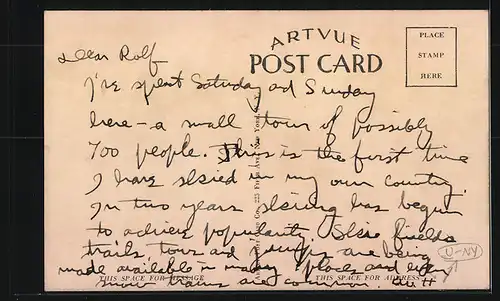 ARTVUE
POST CARD
PLACE
STAMP
HERE
Dear Rolf
I've spent Saturday and Sunday
here - a small town of possibly
700 people. This is the first time
I have skied in my own country.
In two years skiing has begun
to achieve popularity. Skie fields
trails, tows and jumps are being
made available in many places and
snow trains are common.
THIS SPACE FOR MESSAGE
THIS SPACE FOR ADDRESS
U-NY